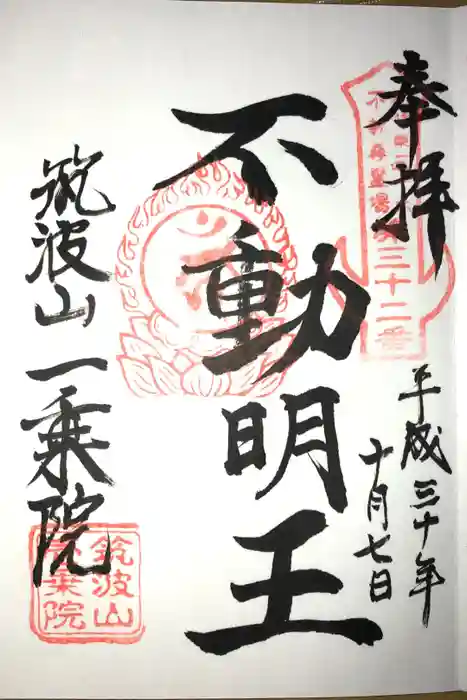 奉拝
不動尊霊場
第三十二番
平成三十年
十月七日
不動明王
筑波山一乗院
筑波山
一乗院